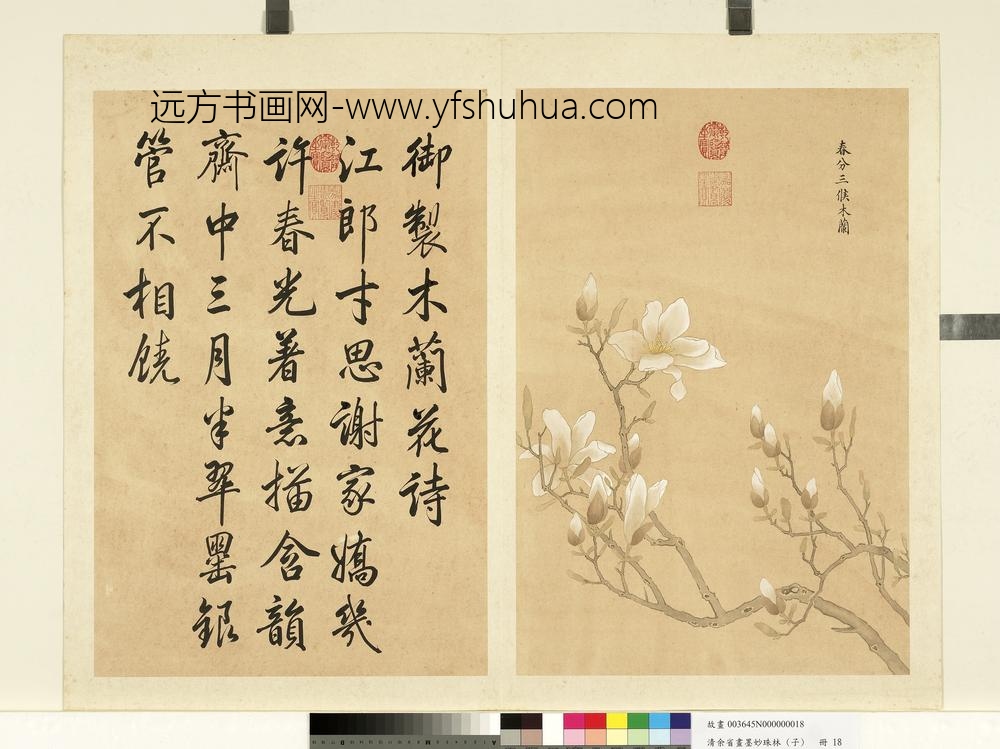 远方书画网-www.yfshuhua.com
春分三候木蘭
御製木蘭花詩
江郎才思謝家嬌幾
許春光著意描含韻
齋中三月半翠罨銀
管不相饒
故畫 003645N000000018
清余省畫墨妙珠林（子） 冊 18